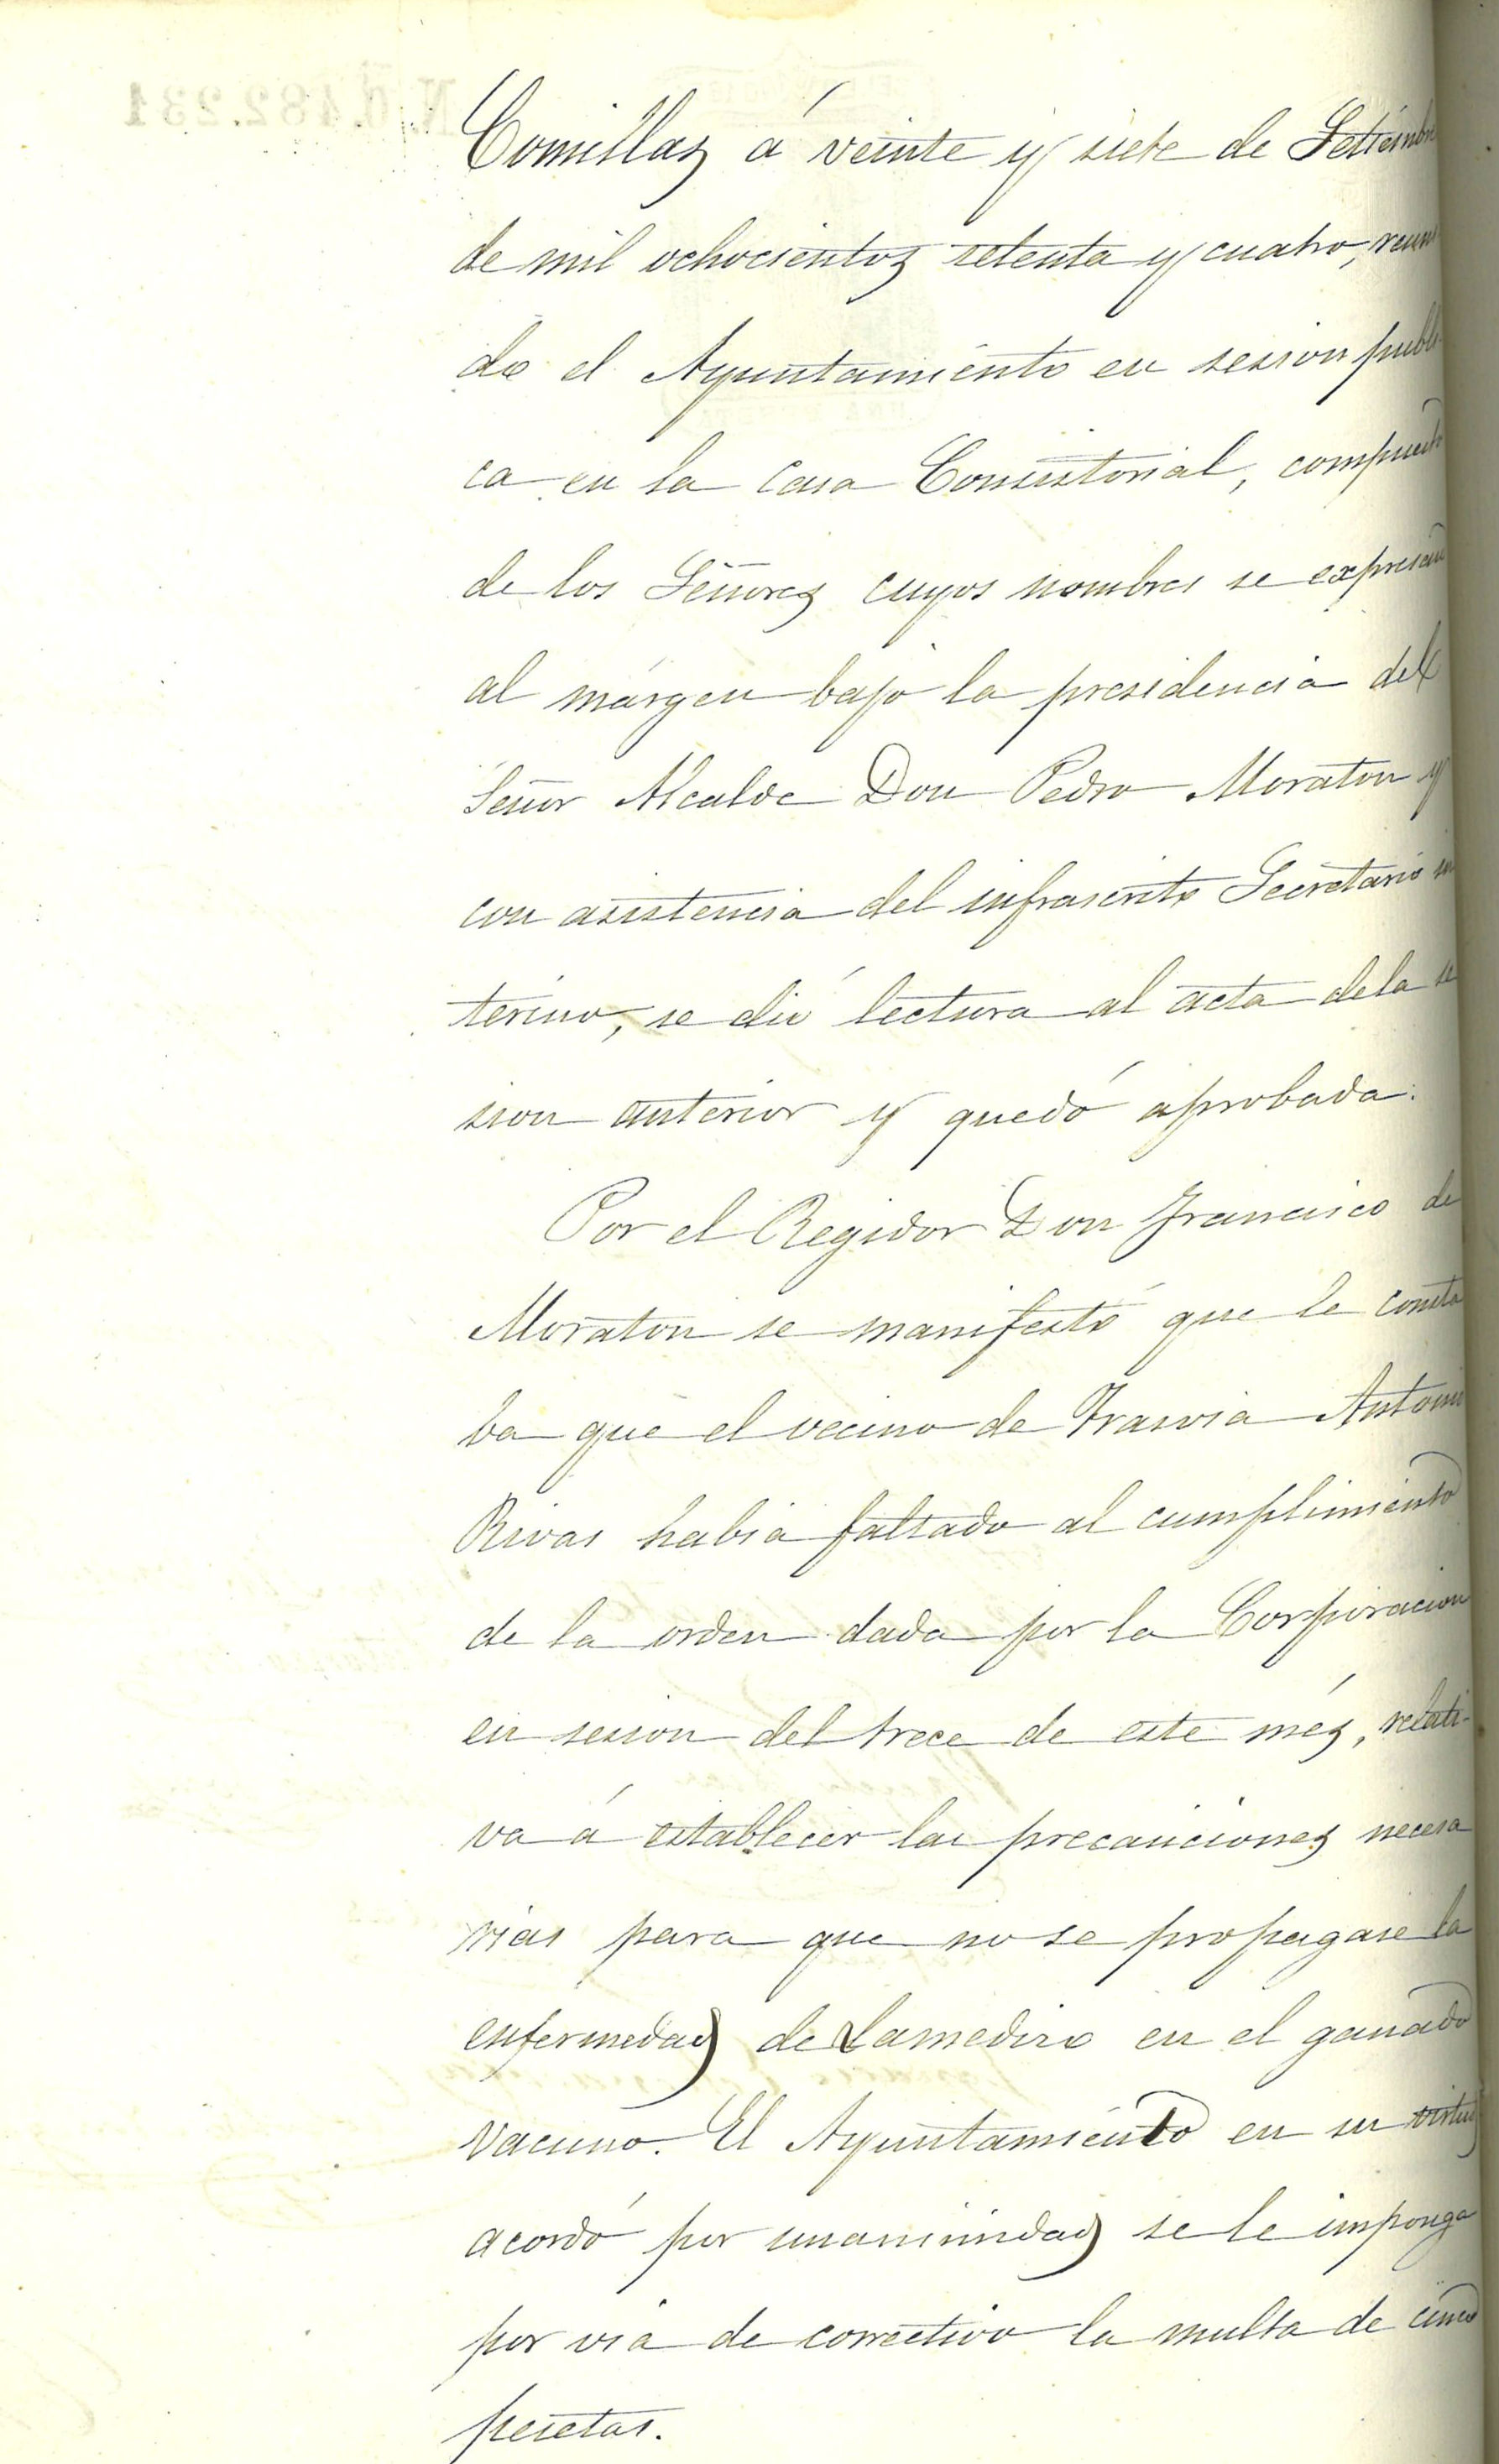 N. 0.482.231
Comillas á veinte y siete de Setiembre
de mil ochocientos setenta y cuatro, reuni
do el Ayuntamiento en sesion publi
ca en la Casa Consistorial, compuesto
de los Señores cuyos nombres se expresan
al márgen bajo la presidencia del
Señor Alcalde Don Pedro Moraton y
con asistencia del infrascrito Secretario in
terino, se dió lectura al acta dela se
sion anterior y quedó aprobada.
Por el Regidor Don Francisco de
Moraton se manifestó que le consta
ba que el vecino de Trasvia Antonio
Rivas habia faltado al cumplimiento
de la orden dada por la Corporacion
en sesion del trece de este més, relati-
va á establecer las precauciones necesa
rias para que no se propagase la
enfermedad de en el ganado
vacuno. El Ayuntamiento en su virtud
acordó por unanimidad se le imponga
por via de correctivo la multa de cinco
pesetas.